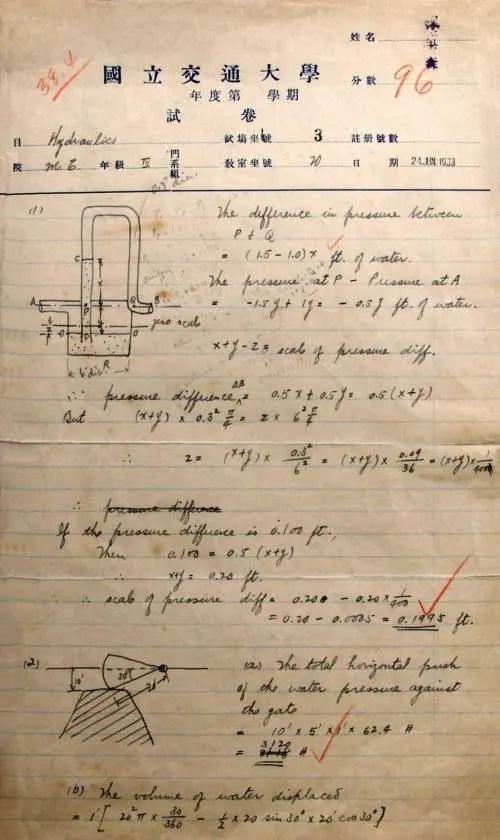 姓名
國立交通大學
38.4
分數 96
年度第 學期
試卷
目 Hydraulics 試場坐號 3 註册號數
院 M.E. 年級 IV 門系組 教室坐號 20 日期 24 JUN. 1933
0.3" dia.
(1) The difference in pressure between
P & Q
= (1.5 - 1.0) x ft. of water.
The pressure at P - Pressure at A
= -1.5 y + 1 y = -0.5 y ft. of water.
C
A P Q B
O O zero scale
6" dia. R
x + y - z = scale of pressure diff.
∴ pressure difference AB = 0.5 x + 0.5 y = 0.5 (x+y)
But (x+y) × 0.3² π/4 = z × 6² π/4
∴ z = (x+y) × 0.3²/6² = (x+y) × 0.09/36 = (x+y) × 1/400
∴ pressure difference
If the pressure difference is 0.100 ft.,
Then 0.100 = 0.5 (x+y)
∴ x+y = 0.20 ft.
∴ scale of pressure diff = 0.200 - 0.20 × 1/400
= 0.20 - 0.0005 = 0.1995 ft.
(2) 10' 30° 20'
(a) The total horizontal push
of the water pressure against
the gate
= 10' × 5' × 1' × 62.4 #
= 3120 #
(b) The volume of water displaced
= 1' [ 20² π × 30/360 - 1/2 × 20 sin 30° × 20 cos 30° ]